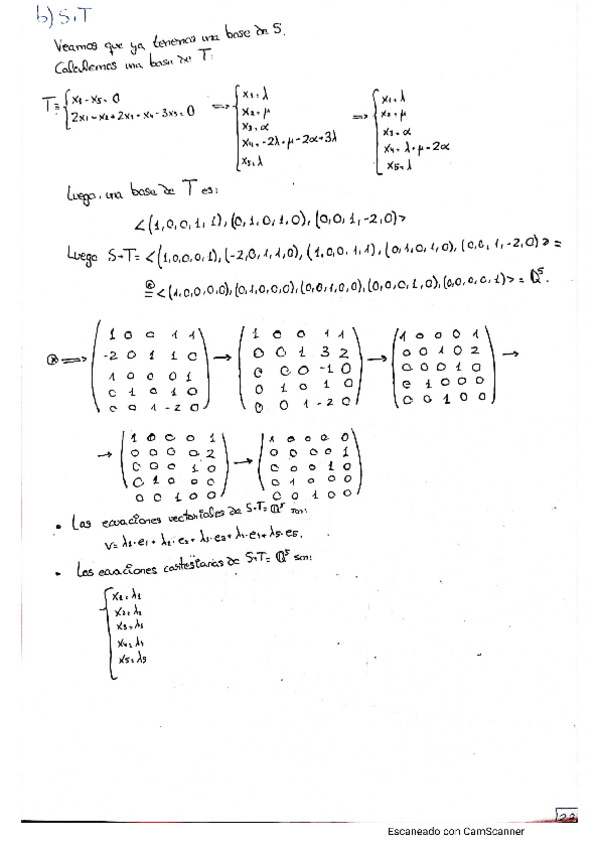 b) S+T
Veamos que ya tenemos una base de S.
Calculemos una base de T:
T≡ { x1 - x5 = 0
2x1 - x2 + 2x3 + x4 - 3x5 = 0
⟹ { x1 = λ
x2 = μ
x3 = α
x4 = -2λ + μ - 2α + 3λ
x5 = λ
⟹ { x1 = λ
x2 = μ
x3 = α
x4 = λ + μ - 2α
x5 = λ
Luego, una base de T es:
<(1,0,0,1,1), (0,1,0,1,0), (0,0,1,-2,0)>
Luego S+T = <(1,0,0,0,1), (-2,0,1,1,0), (1,0,0,1,1), (0,1,0,1,0), (0,0,1,-2,0)> =
⊛= <(1,0,0,0,0), (0,1,0,0,0), (0,0,1,0,0), (0,0,0,1,0), (0,0,0,0,1)> = ℚ⁵.
⊛ ⟹
1 0 0 1 1
-2 0 1 1 0
1 0 0 0 1
0 1 0 1 0
0 0 1 -2 0
→
1 0 0 1 1
0 0 1 3 2
0 0 0 -1 0
0 1 0 1 0
0 0 1 -2 0
→
1 0 0 0 1
0 0 1 0 2
0 0 0 1 0
0 1 0 0 0
0 0 1 0 0
→
→
1 0 0 0 1
0 0 0 0 2
0 0 0 1 0
0 1 0 0 0
0 0 1 0 0
→
1 0 0 0 0
0 0 0 0 1
0 0 0 1 0
0 1 0 0 0
0 0 1 0 0
• Las ecuaciones vectoriales de S+T = ℚ⁵ son:
v = λ1·e1 + λ2·e2 + λ3·e3 + λ4·e4 + λ5·e5.
• Las ecuaciones cartesianas de S+T = ℚ⁵ son:
{ x1 = λ1
x2 = λ2
x3 = λ3
x4 = λ4
x5 = λ5
Escaneado con CamScanner